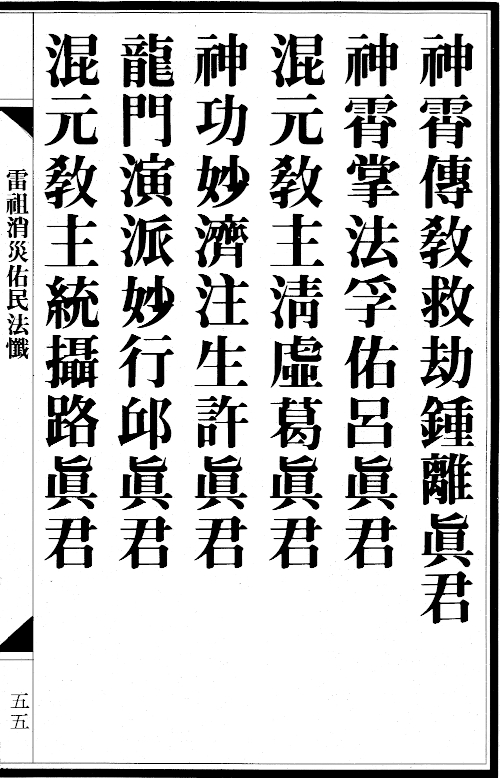 神霄傳教救劫鍾離眞君
神霄掌法孚佑呂眞君
混元教主淸虛葛眞君
神功妙濟注生許眞君
龍門演派妙行邱眞君
混元教主統攝路眞君
雷祖消災佑民法懺
五五